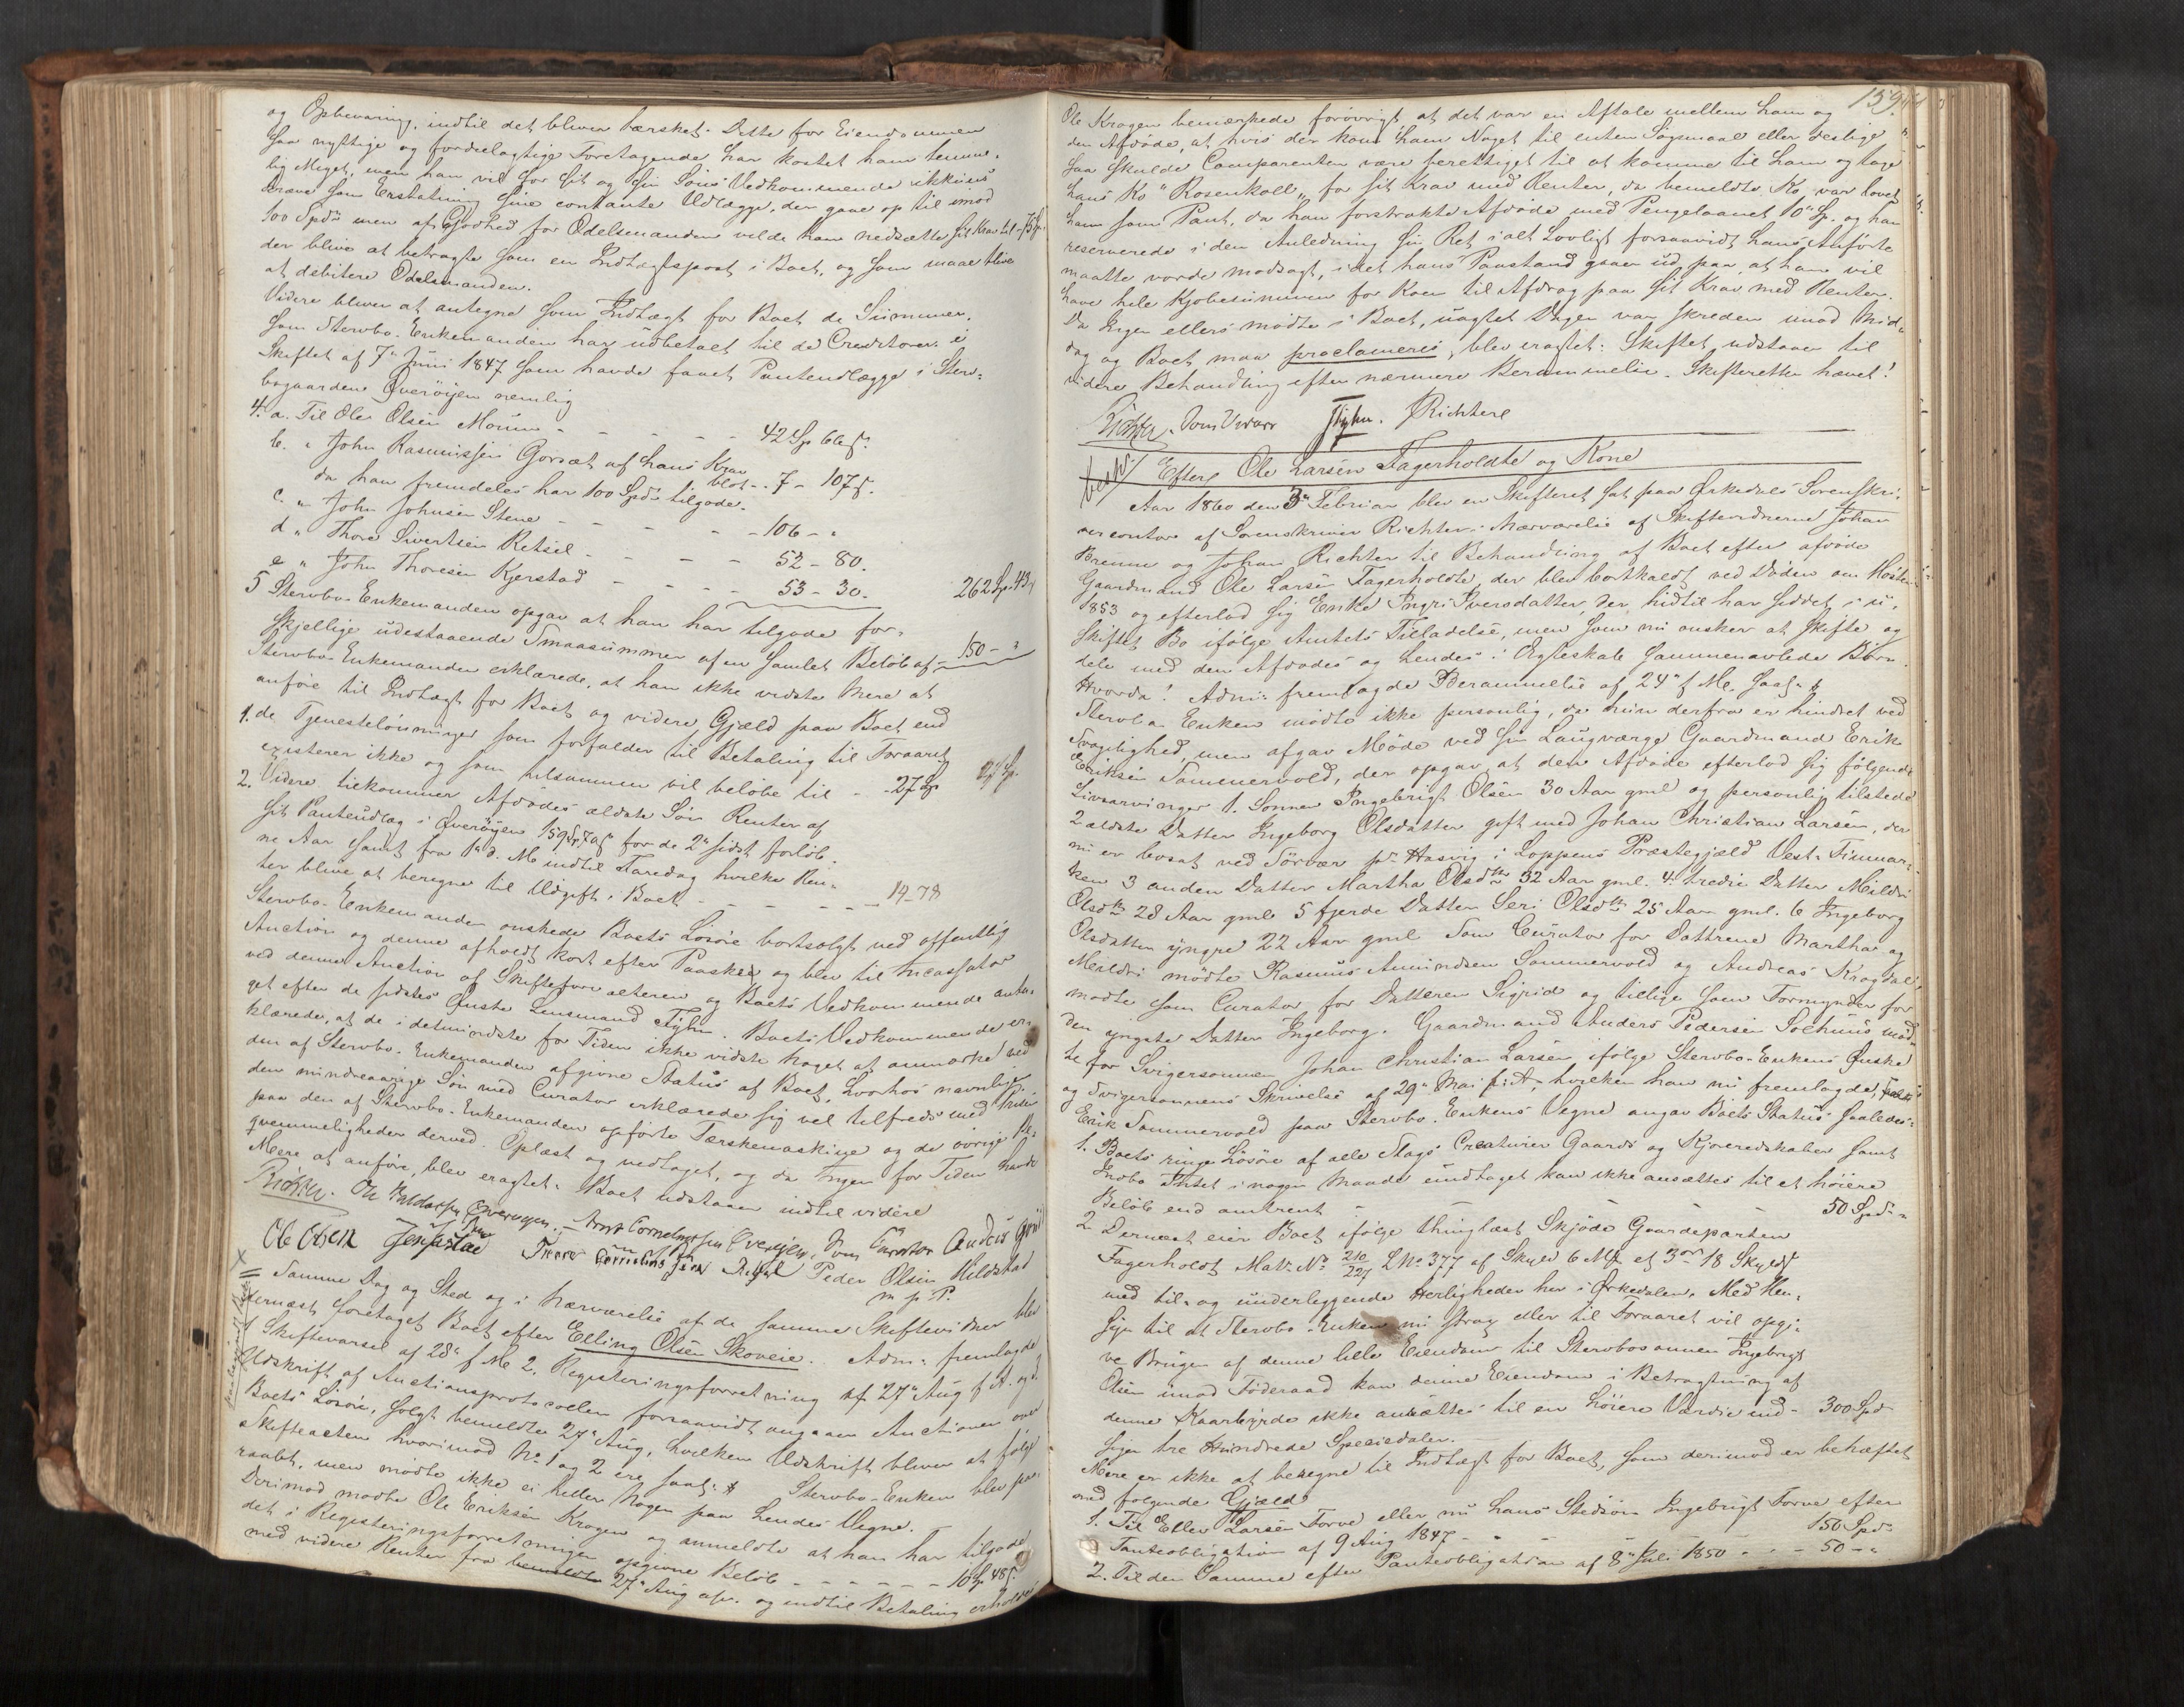 og Opbevaring, indtil det bliver tærsket. Dette for Eiendommen
saa nyttige og fordeelagtige Foretagende har kostet ham temme-
lig Meget, men han vil for sit og sin Søns Vedkommende ikkuns
kræve som Erstatning sine contante Udlægge, der gaae op til imod
100 Spd men af Godhed for Odelsmanden vilde ham nedsætte sit Krav til - 75 Sp
der blive at betragte som en Indtægtspost i Boet, og som maae blive
at debitere Odelsmanden.
Videre bliver at antegne som Indtægt for Boet de Summer,
som Stervbo-Enkemanden har udbetalt til de Creditorer i
Skiftet af 7de Juni 1847 som havde faaet Panteudlægge i Sterv-
bogaarden Qverøyen nemlig
4. a. Til Ole Olsen Moum - - - - 42 Sp 66 s.
b. " John Rasmussen Gorsæt af hans Krav
blot - . 7 - 107 s.
da han fremdeles har 100 Spd tilgode.
c. " John Johnsen Stene - - - - 106 - "
d " Thore Sivertsen Ritsel - - - - 52 - 80.
e " John Thoresen Kjerstad - - - - 53 - 30.
262 Sp. 43
5 Stervbo-Enkemanden opgav at han har tilgode for-
skjellige udestaaende Smaasummer af en samlet Beløb af - 150 - "
Stervbo-Enkemanden erklærede, at han ikke vidste Mere at
anføre til Indtægt for Boet og videre Gjæld paa Boet end
1. de Tjenestelønninger som forfalder til Betaling til Foraaret
existerer ikke og som tilsammen vil beløbe til - - 27 Sp
2. Videre tilkommer Afdødes ældste Søn Renter af
sit Panteudlæg i Qverøyen 159 Sp 7 s for de 2de sidst forløb-
ne Aar samt fra 1ste d. M indtil Faredag hvilke Ren-
ter blive at beregne til Udgift i Boet - - - - 14 - 78
Stervbo-Enkemanden ønskede Boets Løsøre bortsolgt ved offentlig
Auction og denne afholdt kort efter Paaske og blev til Incassator
ved denne Auction af Skifteforvalteren og Boets Vedkommende anta-
get efter de sidstes Ønske Lensmand Flyhn. Boets Vedkommende er-
klærede, at de i detmindste for Tiden ikke vidste Noget at anmærke ved
den af Stervbo-Enkemanden afgivne Status af Boet, hvorhos navnligen
den mindreaarige Søn med Curator erklærede sig vel tilfreds med Prisen
paa den af Stervbo-Enkemanden opførte Tærskemaskine og de øvrige Be-
qvemmeligheder derved. Oplæst og vedtaget, og da Ingen for Tiden havde
Mere at anføre, blev eragtet: Boet udstaaer indtil videre
Richter.
Ole Olsen Jens Stad Peder Olsen Kildstad
m p P.
Samme Dag og Sted og i Nærværelse af de samme Skiftevidner blev
dernæst foretaget Boet efter Elling Olsen Skoveie. Adm: fremlagde
1 Skiftevarsel af 28de f M 2. Registeringsforretning af 27de Aug f A. og 3
Udskrift af Auctionsprotocollen forsaavidt angaaer Auctionen over
Boets Løsøre, solgt bemeldte 27de Aug, hvilken Udskrift bliver at følge
Skifteacten hvorimod No 1 og 2 ere saal: Stervbo-Enken blev paa-
raabt, men mødte ikke ei heller Nogen paa hendes Vegne.
Derimod mødte Ole Eriksen Kragen og anmeldte at han har tilgode
det i Registeringsforretningen opgivne Beløb - - - - 10 Sp 48 s.
med videre Renter fra bemeldte 27de Aug og indtil Betaling erholdes
159
Ole Kragen bemærkede forøvrigt at det var en Aftale mellem ham og
den Afdøde, at hvis der kom ham Noget til enten Søgsmaal eller deslige
saa skulde Comparenten være berettiget til at komme til ham og tage
hans Ko "Rosenkoll" for sit Krav med Renter, da bemeldte Ko var lovet
ham som Pant, da han forstrakte Afdøde med Pengelaanet 10 Sp. og han
reserverede i den Anledning sin Ret i alt Lovligt forsaavidt hans Anførte
maatte vorde modsagt, idet hans Paastand gaaer ud paa, at han vil
have hele Kjøbesummen for Koen til Afdrag paa sit Krav med Renter.
Da Ingen ellers mødte i Boet, uagtet Dagen var skreden imod Mid-
dag og Boet maa proclameres, blev eragtet: Skiftet udstaaer til
videre Behandling efter nærmere Berammelse. Skifteretten hævet!
Richter. Som Vidner Flyhn. JRichter
Efter Ole Larsen Fagerholdte og Kone
Aar 1860 den 3de Februar blev en Skifteret sat paa Ørkedals Sorenskri-
vercontor af Sorenskriver Richter i Nærværelse af Skiftevidnerne Johan
Brenne og Johan Richter til Behandling af Boet efter afdøde
Gaardmand Ole Larsen Fagerholdte, der blev bortkaldt ved Døden om Høsten
1853 og efterlod sig Enke Ingri Iversdatter, der hidtil har siddet i u-
skiftet Bo ifølge Amtets Tilladelse, men som nu ønsker at skifte og
dele med den Afdødes og hendes i Ægteskab sammenavlede Børn.
Hvorda! Adm: fremlagde Berammelse af 24de f M. saal:
Stervbo Enken mødte ikke personlig, da hun derfra er hindret ved
Svagelighed, men afgav Møde ved sin Laugværge Gaardmand Erik
Eriksen Sommervold, der opgav, at den Afdøde efterlod sig følgende
Livsarvinger 1. Sønnen Ingebrigt Olsen 30 Aar gml og personlig tilstede
2 ældste Datter Ingeborg Olsdatter gift med Johan Christian Larsen, der
nu er bosat ved Sørvær pr Hasvig i Loppens Præstegjæld Vest-Finmar-
ken 3 anden Datter Martha Olsdtr 32 Aar gml. 4. tredie Datter Mildri
Olsdtr 28 Aar gml 5 fjerde Datter Seri Olsdtr 25 Aar gml. 6 Ingeborg
Olsdatter yngre 22 Aar gml Som Curator for Døttrene Martha og
Mildri mødte Rasmus Amundsen Sommervold og Andreas Kragdal
mødte som Curator for Datteren Sigrid og tillige som Formynder for
den yngste Datter Ingeborg. Gaardmand Anders Pedersen Solhuus mød-
te for Svigersønnen Johan Christian Larsen ifølge Stervbo-Enkens Ønske
og Svigersønnens Skrivelse af 29de Mai f. A., hvilken han nu fremlagde,
Erik Sommervold paa Stervbo-Enkens Vegne angav Boets Status saaledes:
1. Boets ringe Løsøre af alle Slags Creaturer Gaards og Kjøreredskaber samt
Indbo Intet i nogen Maade undtaget kan ikke ansættes til et høiere
Beløb end omtrent - - - 50 Spd "
2 Dernæst eier Boet ifølge thinglæst Skjøde Gaardeparten
Fagerholdt Mat: No 210/227 LNo 377 af Skyld 6 Mk et 3 ort 18 Skyld
med til- og underliggende Herligheder her i Ørkedalen. Med Hen-
syn til at Stervbo-Enken nu strax eller til Foraaret vil opgi-
ve Brugen af denne lille Eiendom til Stervbosønnen Ingebrigt
Olsen imod Føderaad kan denne Eiendom i Betragtning af
denne Kaarbyrde ikke ansættes til en høiere Værdie end - 300 Spd
siger tre Hundrede Speciedaler.
Mere er ikke at beregne til Indtægt for Boet, som derimod er behæftet
med følgende Gjæld
1. Til Eller Larsen Forve eller nu hans Stedsøn Ingebrigt Forve efter
Panteobligation af 9 Aug 1847 - - - 150 Spd
2. Til den Samme efter Panteobligation af 8de Juli 1850 - - - 50 - "